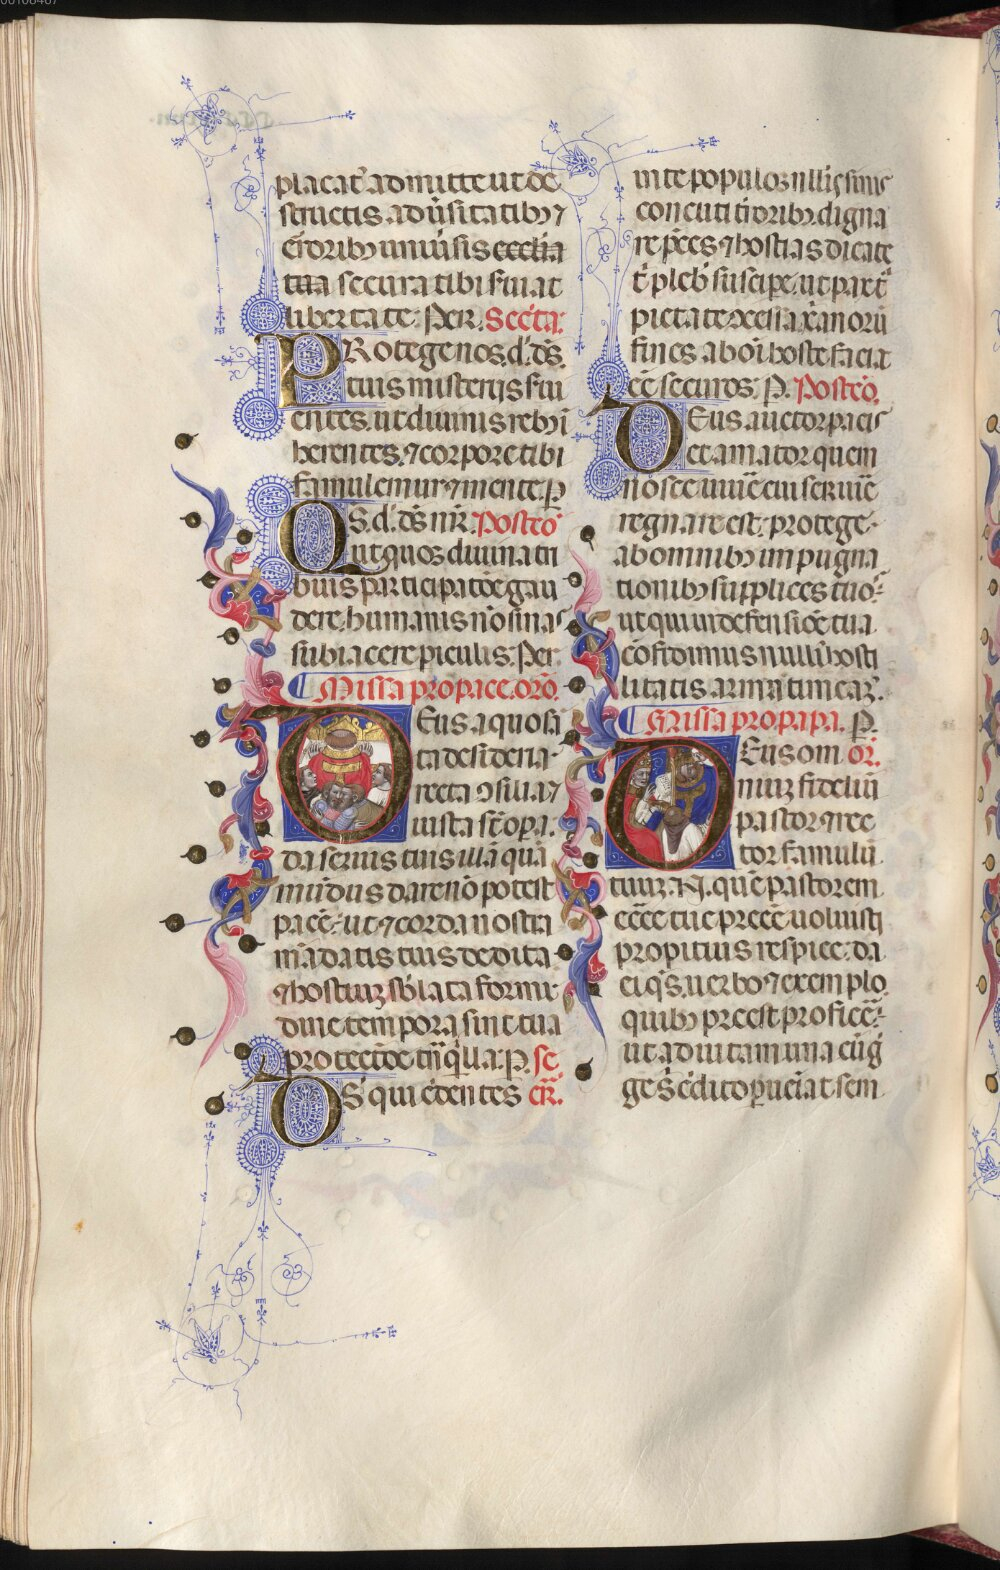 placat' admitte ut de
structis aduersitatib; ⁊
erroribus uniuersis ecclia
tua secura tibi seruiat
libertate. Per. Secreta:
PRotege nos d. ds
tuis misterijs serui
entes. ut diuinis rebus i
herentes. ⁊ corpore tibi
famulemur ⁊ mente. P
QS. d. ds nr. Postco
ut quos diuina tri
buis participatione gau
dere. humanis no sinas
subiacere piculis. Per
Missa pro pace. oro.
Deus a quo sa
ta desideria
recta ɔsilia ⁊
iusta st opa.
da seruis tuis illa qua
mudus dare no potest
pace: ut ⁊ corda nostra
madatis tuis dedita
⁊ hostium sblata formi
dine tempora sint tua
protectoe tnqlla. P. se
DS qui credentes cr.
in te populos nullis sinis
concuti terroribus. digna
re pces ⁊ hostias dicate
t pleb suscipe. ut pax t
pietate ɔcessa xanoru
fines ab oi hoste faciat
ee securos. P. Postco.
DEus auctor pacis
et amator quem
nosce uiue cui seruire
regnare est: protege
ab omnibus impugna
tionibus supplices tuos
ut qui in defensioe tua
cofidimus nulli hosti
litatis arma timeam.
Missa pro papa. P.
DEus om or.
nium fideliu
pastor ⁊ rec
tor famulu
tuum. N. que pastorem
ecce tue preee uoluisti
propitius respice: da
ei qs. uerbo ⁊ exemplo
quibus preest proficere:
ut ad uitam una cu g
ge s credito pueniat sem